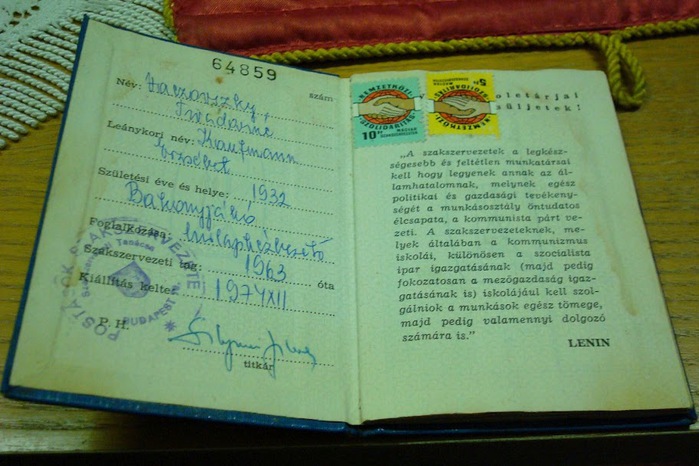 64859
szám
Név:
Leánykori név: Kaufmann
Erzsébet
Születési éve és helye: 1932
Bakonyjákó
Foglalkozása:
Szakszervezeti tag: 1963 óta
Kiállítás kelte: 1974 XII
P. H.
titkár
POSTÁSOK SZAKSZERVEZETE
BUDAPEST
NEMZETKÖZI
SZOLIDARITÁS
10 Ft
MAGYAR
SZAKSZERVEZETEK
NEMZETKÖZI
SZOLIDARITÁS
5 Ft
MAGYAR
SZAKSZERVEZETEK
oletárjai
süljetek!
„A szakszervezetek a legkész-
ségesebb és feltétlen munkatársai
kell hogy legyenek annak az ál-
lamhatalomnak, melynek egész
politikai és gazdasági tevékeny-
ségét a munkásosztály öntudatos
élcsapata, a kommunista párt ve-
zeti. A szakszervezeteknek, me-
lyek általában a kommunizmus
iskolái, különösen a szocialista
ipar igazgatásának (majd pedig
fokozatosan a mezőgazdaság igaz-
gatásának is) iskolájául kell szol-
gálniok a munkások egész tömege,
majd pedig valamennyi dolgozó
számára is.”
LENIN